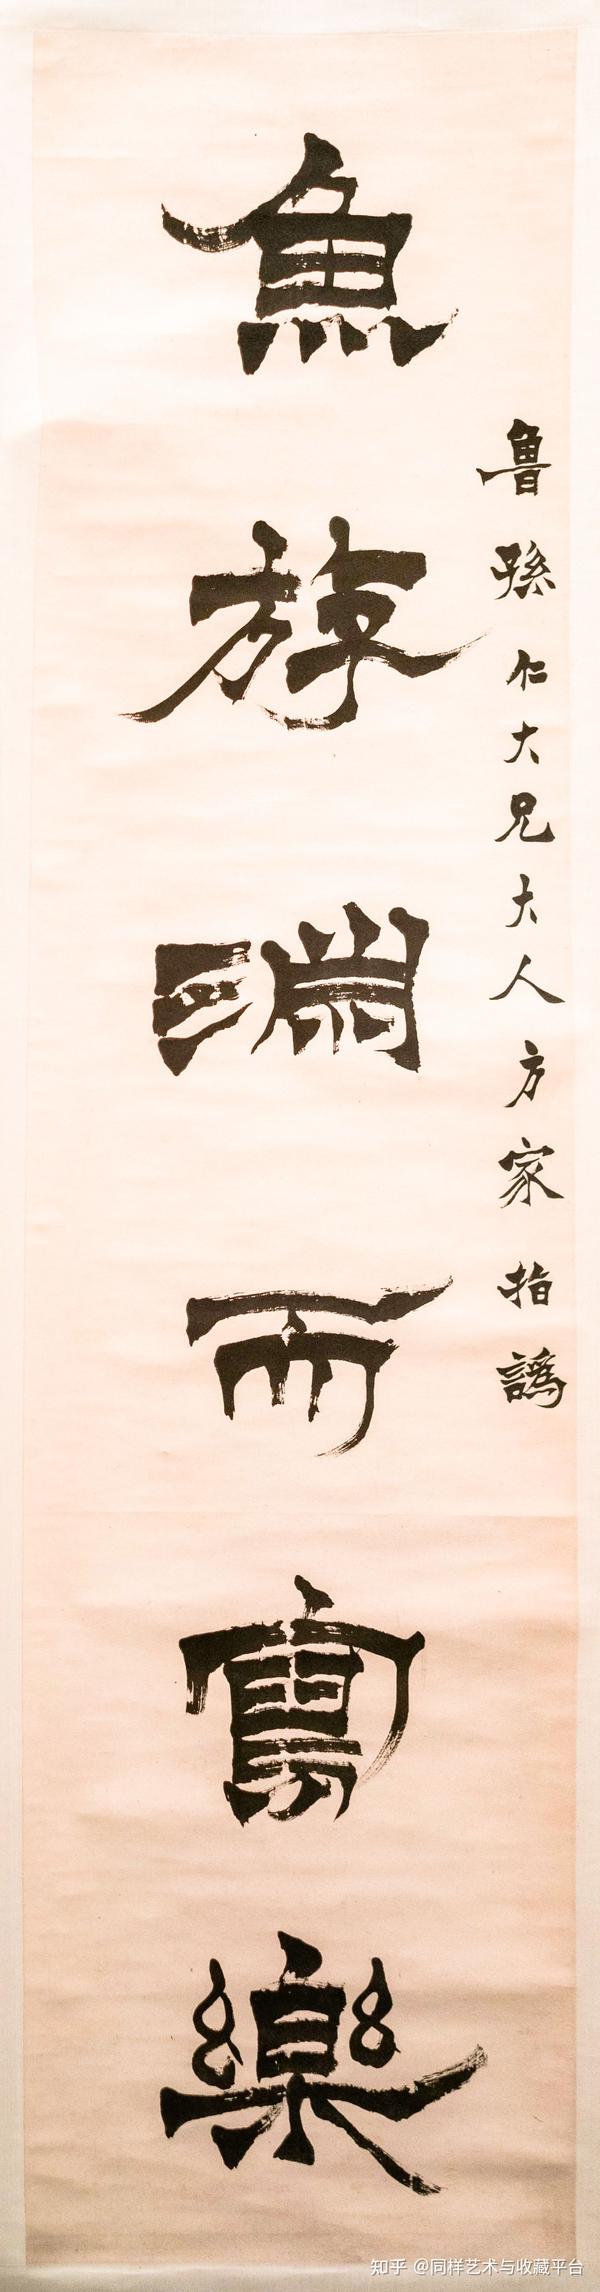 魯孫仁大兄大人方家指譌
魚斿淵而寫樂
知乎 @同样艺术与收藏平台